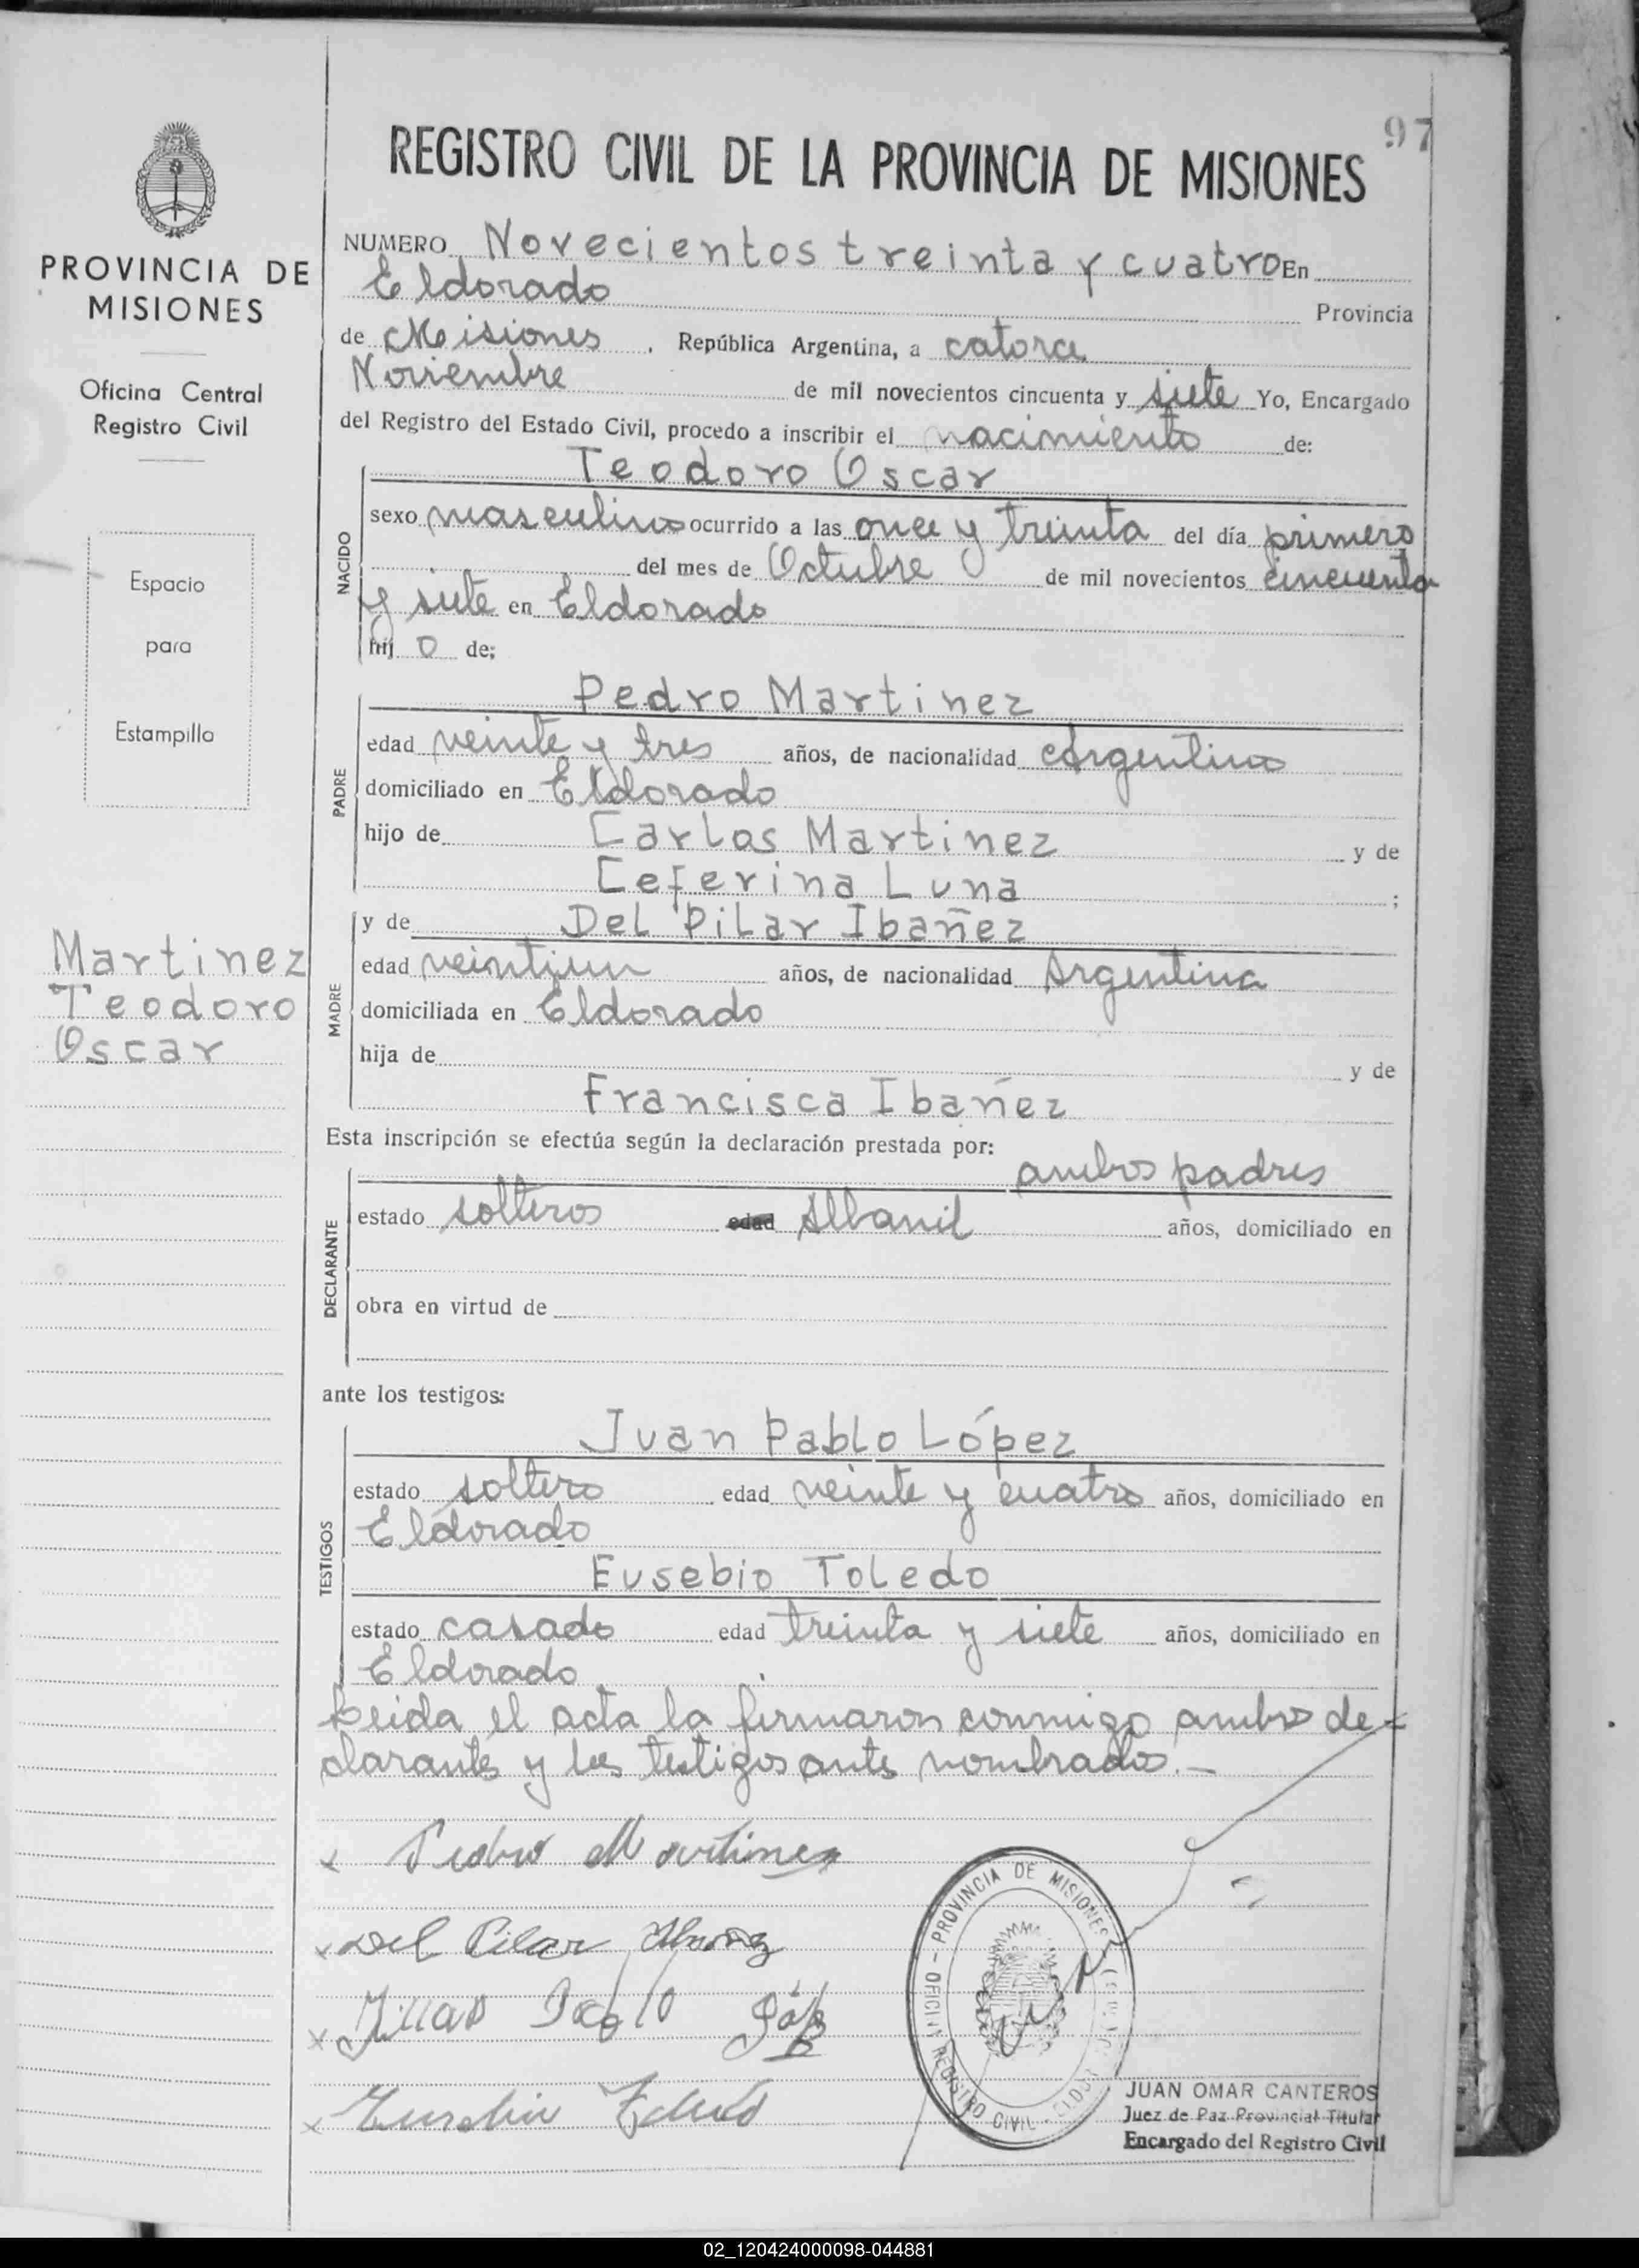 97
REGISTRO CIVIL DE LA PROVINCIA DE MISIONES
PROVINCIA DE
MISIONES
Oficina Central
Registro Civil
Espacio
para
Estampilla
Martinez
Teodoro
Oscar
NUMERO Novecientos treinta y cuatro En
Eldorado
Provincia
de Misiones , República Argentina, a catorce
Noviembre de mil novecientos cincuenta y siete Yo, Encargado
del Registro del Estado Civil, procedo a inscribir el nacimiento de:
NACIDO
Teodoro Oscar
sexo masculino ocurrido a las once y treinta del día primero
del mes de Octubre de mil novecientos cincuenta
y siete en Eldorado
hij o de;
PADRE
Pedro Martinez
edad veinte y tres años, de nacionalidad Argentino
domiciliado en Eldorado
hijo de Carlos Martinez y de
Ceferina Luna ;
MADRE
y de Del Pilar Ibañez
edad veintiun años, de nacionalidad Argentina
domiciliada en Eldorado
hija de y de
Francisca Ibañez
Esta inscripción se efectúa según la declaración prestada por:
DECLARANTE
ambos padres
estado solteros edad Albanil años, domiciliado en
obra en virtud de
ante los testigos:
TESTIGOS
Juan Pablo López
estado soltero edad veinte y cuatro años, domiciliado en
Eldorado
Eusebio Toledo
estado casado edad treinta y siete años, domiciliado en
Eldorado
Leida el acta la firmaron conmigo ambos de-
clarantes y los testigos antes nombrados.-
x Pedro Martinez
x Del Pilar Ibañez
x Juan Pablo López
x Eusebio Toledo
PROVINCIA DE MISIONES
OFICINA REGISTRO CIVIL
JUAN OMAR CANTEROS
Juez de Paz Provincial Titular
Encargado del Registro Civil
02_120424000098-044881